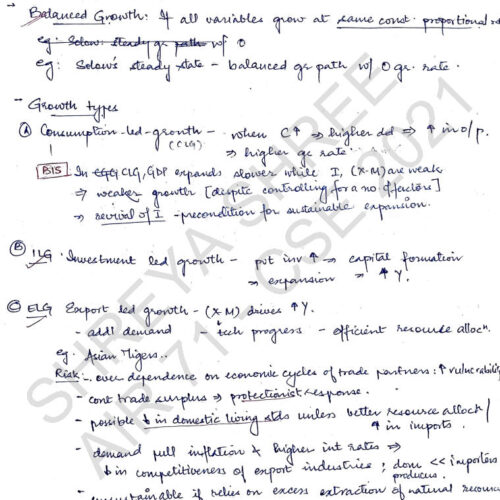 → Balanced Growth: If all variables grow at same const. proportional
eg. Solow steady gr path w/ 0
eg: Solow's steady state - balanced gr path w/ 0 gr. rate.
- Growth types
Ⓐ Consumption-led-growth - when C↑ ⇒ higher dd ⇒ ↑ in o/p.
(CLG) ⇒ higher gr rate.
BIS In CLG, GDP expands slower while I, (X-M) are weak
⇒ weaker growth [despite controlling for a no. of factors]
⇒ revival of I - precondition for sustainable expansion.
Ⓑ ILG Investment led growth - pvt inv ↑ → capital formation
→ expansion → ↑ Y.
Ⓒ ELG Export led growth - (X-M) drives ↑Y.
- addl demand - tech progress - efficient resource allocn.
eg. Asian Tigers..
Risk: - over dependence on economic cycles of trade partners: ↑ vulnerabilit
- cont trade surplus ⇒ protectionist response.
- possible ↓ in domestic living stds unless better resource alloct/
↑ in imports.
- demand pull inflation & higher int rates ⇒
↓ in competitiveness of export industries; dom << importers
producers.
if relies on excess extraction of natural resour
SHREYA SHREE
AIR 71 - CSE 2021